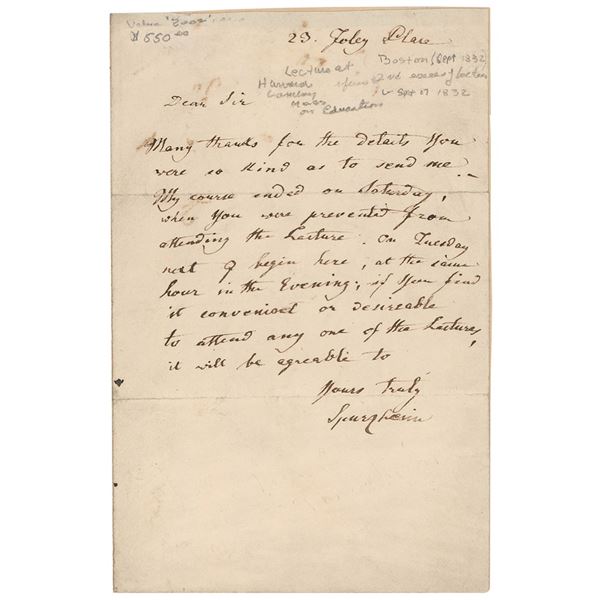 Value
$550.00
23. Foley Place
Boston (Sept 1832)
Lecture at
Harvard
2nd
Sept 17 1832
Mass
on Education
Dear Sir
Many thanks for the details You
were so kind as to send me. –
My course ended on Saturday,
when You were prevented from
attending the Lecture. On Tuesday
next I begin here, at the same
hour in the Evening; if You find
it convenient or desireable
to attend any one of the Lectures,
it will be agreable to
Yours truly
Spurzheim